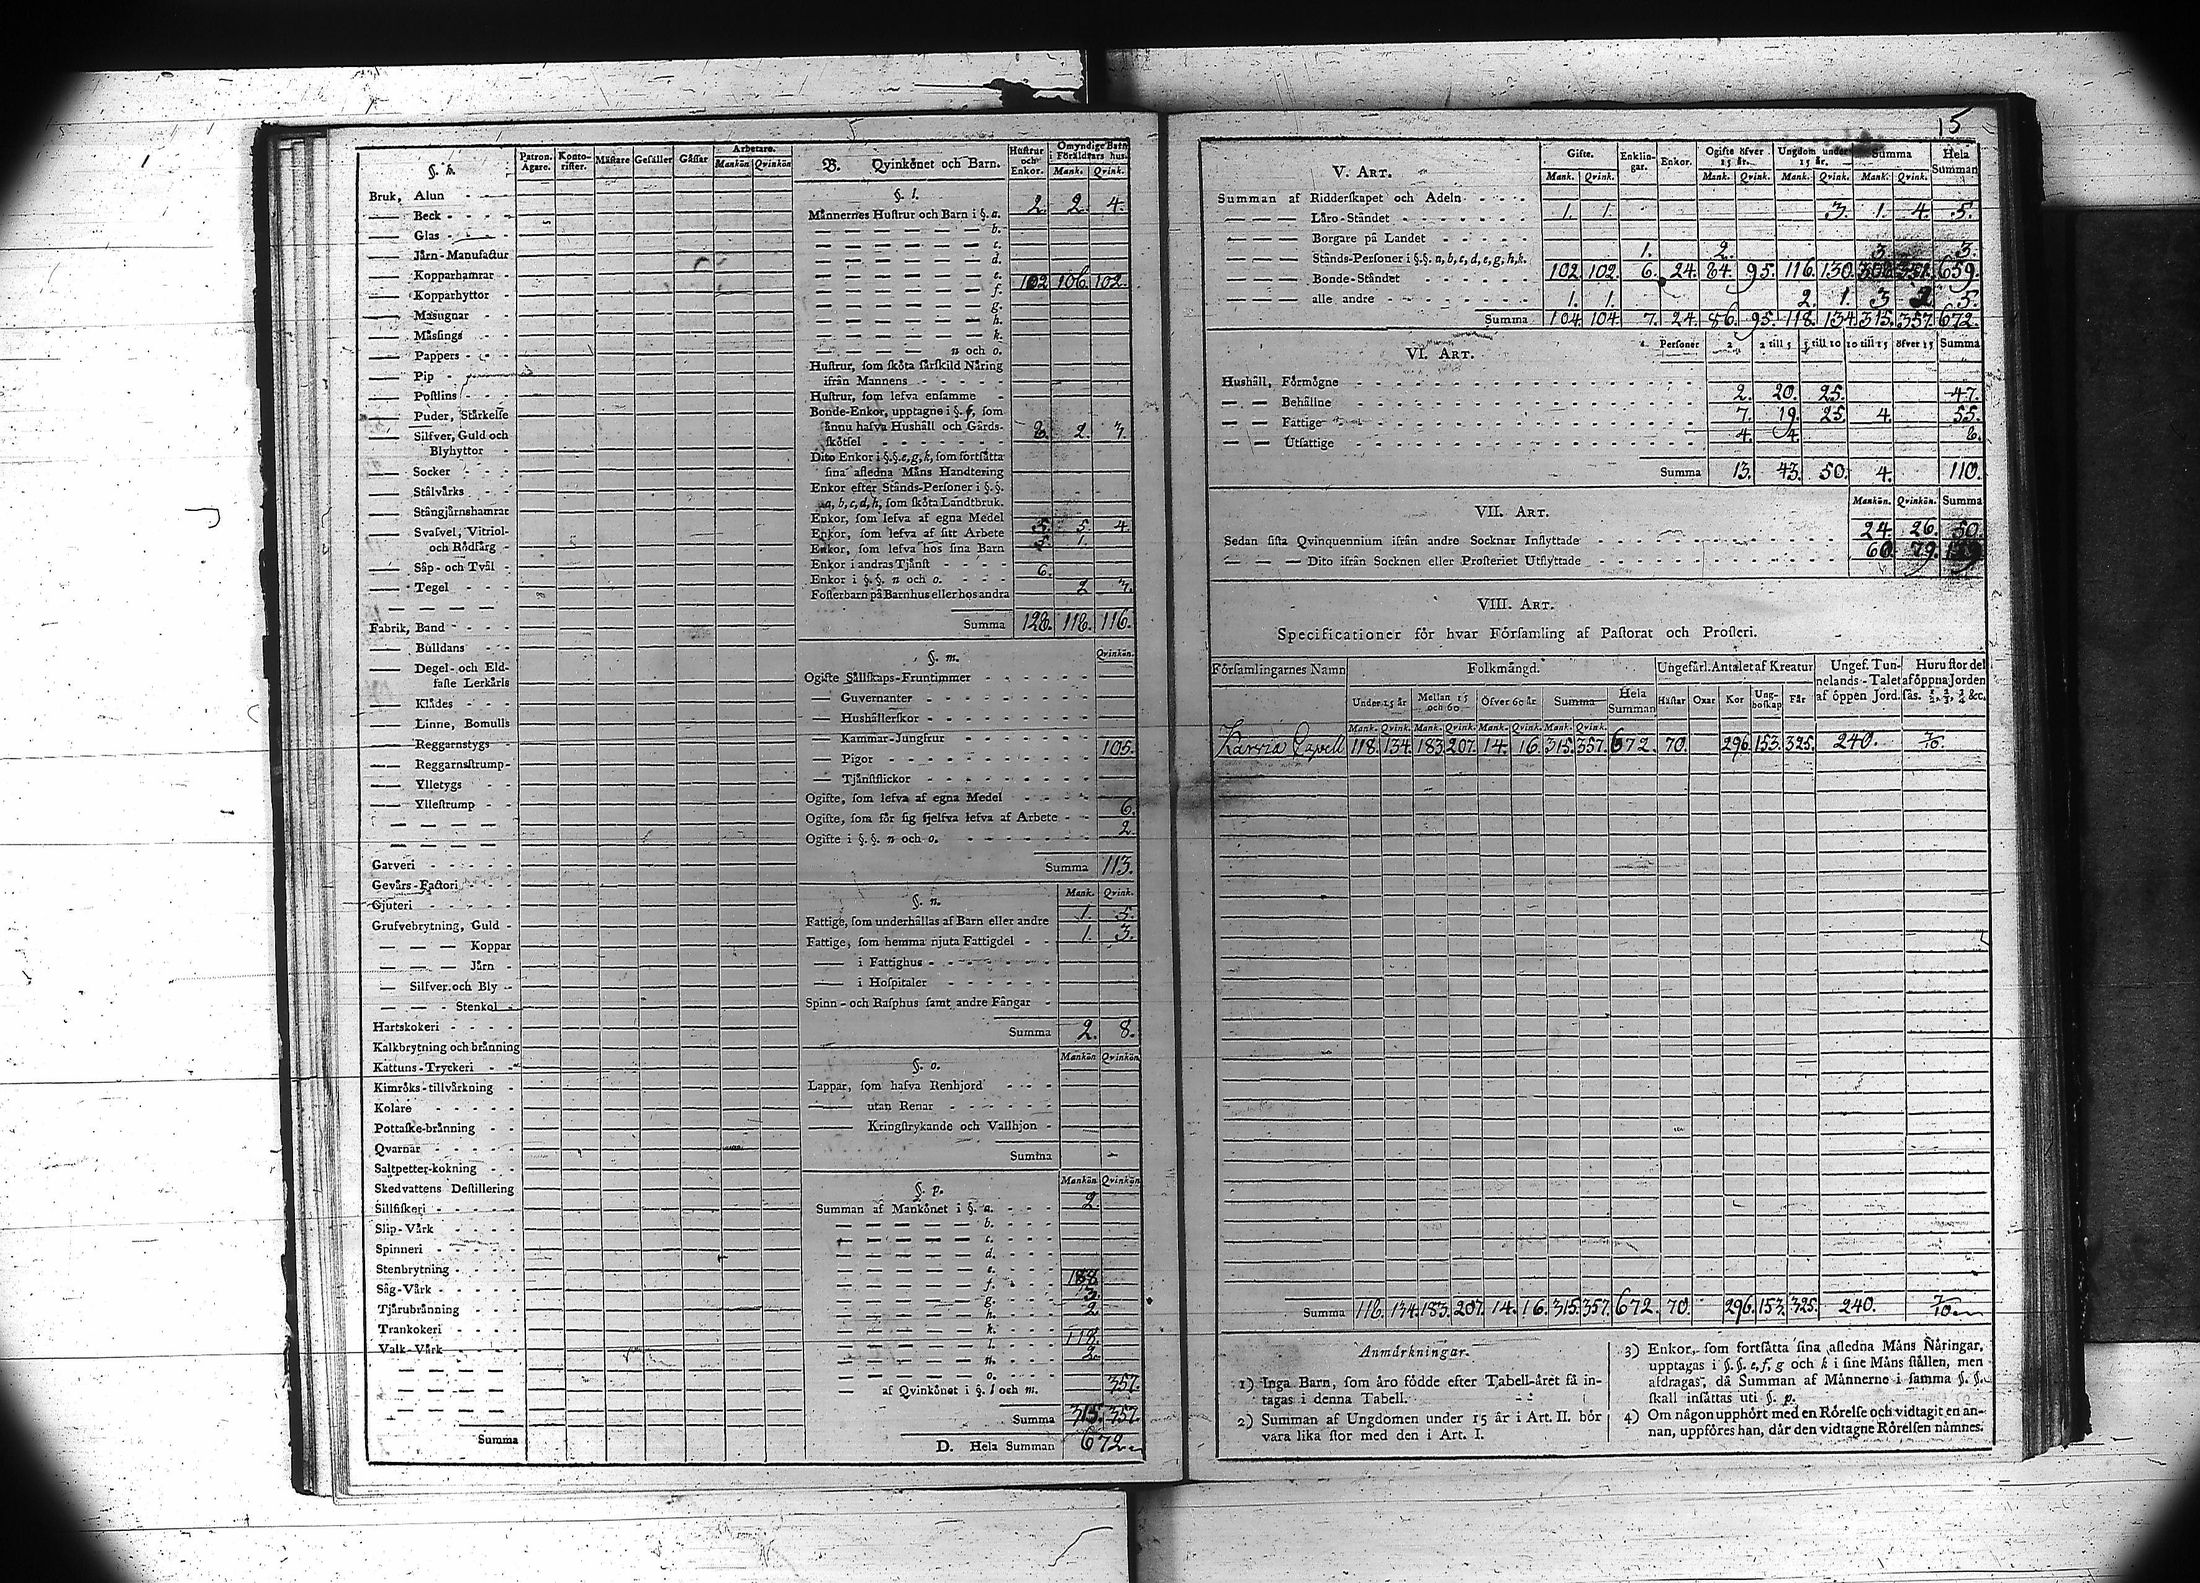 15
5
§. h. Patron. Ägare. Konto-rister. Mästare Gesäller Gåssar Arbetare. Mankön Qvinkön
Bruk, Alun
— Beck
— Glas
— Järn-Manufactur
— Kopparhamrar
— Kopparhyttor
— Masugnar
— Mäsings
— Pappers
— Pip
— Postlins
— Puder, Stärkelse
— Silfver, Guld och
Blyhyttor
— Socker
— Stålvärks
— Stångjärnshamrar
— Svafvel, Vitriol-
och Rödfärg
— Såp- och Tvål
— Tegel
— — — —
Fabrik, Band
— Bulldans
— Degel- och Eld-
faste Lerkärls
— Klädes
— Linne, Bomulls
— Reggarnstygs
— Reggarnsstrump
— Ylletygs
— Yllestrump
— — — —
— — — —
Garveri
Gevärs-Factori
Gjuteri
Grufvebrytning, Guld
— — — Koppar
— — — Järn
— Silfver och Bly
— — — Stenkol
Hartskokeri
Kalkbrytning och bränning
Kattuns-Tryckeri
Kimröks-tillvärkning
Kolare
Pottaske-bränning
Qvarnar
Saltpetter-kokning
Skedvattens Destillering
Sillfiskeri
Slip-Värk
Spinneri
Stenbrytning
Såg-Värk
Tjärubränning
Trankokeri
Valk-Värk
— — — —
— — — —
— — — —
Summa
B. Qvinkönet och Barn. Hustrur och Enkor. Omyndige Barn i Föräldrars hus. Mank. Qvink.
§. l.
Männernes Hustrur och Barn i §. a. 2. 2. 4.
— — — — — — b.
— — — — — — c.
— — — — — — d.
— — — — — — e.
— — — — — — f. 102 106. 102.
— — — — — — g.
— — — — — — h.
— — — — — — k.
— — — — n och o.
Hustrur, som sköta särskild Näring
ifrån Mannens
Hustrur, som lefva ensamme
Bonde-Enkor, upptagne i §. f, som
ännu hafva Hushåll och Gårds-
skötsel 8. 2. 7.
Dito Enkor i §.§. e, g, k, som fortsätta
sina afledna Mäns Handtering
Enkor efter Stånds-Personer i §.§.
a, b, c, d, h, som sköta Landtbruk.
Enkor, som lefva af egna Medel
Enkor, som lefva af sitt Arbete 5. 5. 4.
Enkor, som lefva hos sina Barn 5. 1.
Enkor i andras Tjänst
Enkor i §.§. n och o. 6.
Fosterbarn på Barnhus eller hos andra 2 7.
Summa 128. 118. 116.
§. m. Qvinkön.
Ogifte Sällskaps-Fruntimmer
Guvernanter
— Hushållerskor
— Kammar-Jungfrur
— Pigor 105.
— Tjänstflickor
Ogifte, som lefva af egna Medel
Ogifte, som för sig sjelfva lefva af Arbete 6.
Ogifte i §.§. n och o. 2.
Summa 113.
§. n. Mank. Qvink.
Fattige, som underhållas af Barn eller andre 1. 5.
Fattige, som hemma njuta Fattigdel 1. 3.
— i Fattighus
— i Hospitaler
Spinn- och Rasphus samt andre Fångar
Summa 2. 8.
§. o. Mankön Qvinkön
Lappar, som hafva Renhjord
— utan Renar
— Kringstrykande och Vallhjon
Summa -
§. p. Mankön Qvinkön
Summan af Mankönet i §. a. 2.
— — — — — b.
— — — — — c.
— — — — — d.
— — — — — e.
— — — — — f. 188
— — — — — g. 3.
— — — — — h. 2.
— — — — — k.
— — — — — l. 118.
— — — — — n. 2.
— — — — — o.
— af Qvinkönet i §. l och m. 357.
Summa 315. 357.
D. Hela Summan 672
V. Art. Gifte. Mank. Qvink. Enklin-gar. Enkor. Ogifte öfver 15 år. Mank. Qvink. Ungdom under 15 år. Mank. Qvink. Summa Mank. Qvink. Hela Summan
Summan af Ridderskapet och Adeln
— — — Läro-Ståndet 1. 1. 3. 1. 4. 5.
— — — Borgare på Landet
— — — Stånds-Personer i §.§. a, b, c, d, e, g, h, k. 1. 2. 3. 3.
— — — Bonde-Ståndet 102. 102. 6. 24. 84. 95. 116. 130. 308. 351. 659.
— — — alle andre 1. 1. 2. 1. 3 2 5.
Summa 104. 104. 7. 24. 86. 95. 118. 134. 315. 357. 672.
VI. Art. Personer 2 2 till 5 5 till 10 10 till 15 öfver 15 Summa
Hushåll, Förmögne 2. 20. 25. 47.
— — Behållne 7. 19. 25. 4. 55.
— — Fattige 4. 4.
— — Utfattige
Summa 13. 43. 50. 4. 110.
VII. Art. Mankön. Qvinkön. Summa
Sedan sista Qvinquennium ifrån andre Socknar Inflyttade 24. 26. 50.
— — — Dito ifrån Socknen eller Prosteriet Utflyttade 60. 79.
VIII. Art.
Specificationer för hvar Församling af Pastorat och Prosteri.
Församlingarnes Namn Folkmängd. Ungefärl. Antalet af Kreatur Ungef. Tun-nelands-Talet af öppen Jord. Huru stor del af öppna Jorden sås. 1/2, 2/3, 3/4 &c.
Under 15 år Mellan 15 och 60 Öfver 60 år Summa Hela Summan Hästar Oxar Kor Ung-boskap Får
Mank. Qvink. Mank. Qvink. Mank. Qvink. Mank. Qvink.
Karvia Capell 118. 134. 183. 207. 14. 16. 315. 357. 672. 70. 296. 153. 325. 240. 7/10.
Summa 118. 134. 183. 207. 14. 16. 315. 357. 672. 70. 296. 153. 325. 240. 7/10
Anmärkningar.
1) Inga Barn, som äro födde efter Tabell-året få in-
tagas i denna Tabell.
2) Summan af Ungdomen under 15 år i Art. II. bör
vara lika stor med den i Art. I.
3) Enkor, som fortsätta sina afledna Mäns Näringar,
upptagas i §.§. e, f, g och k i sine Mäns ställen, men
afdragas, då Summan af Männerne i samma §.§.
skall insättas uti §. p.
4) Om någon upphört med en Rörelse och vidtagit en an-
nan, uppföres han, där den vidtagne Rörelsen nämnes.